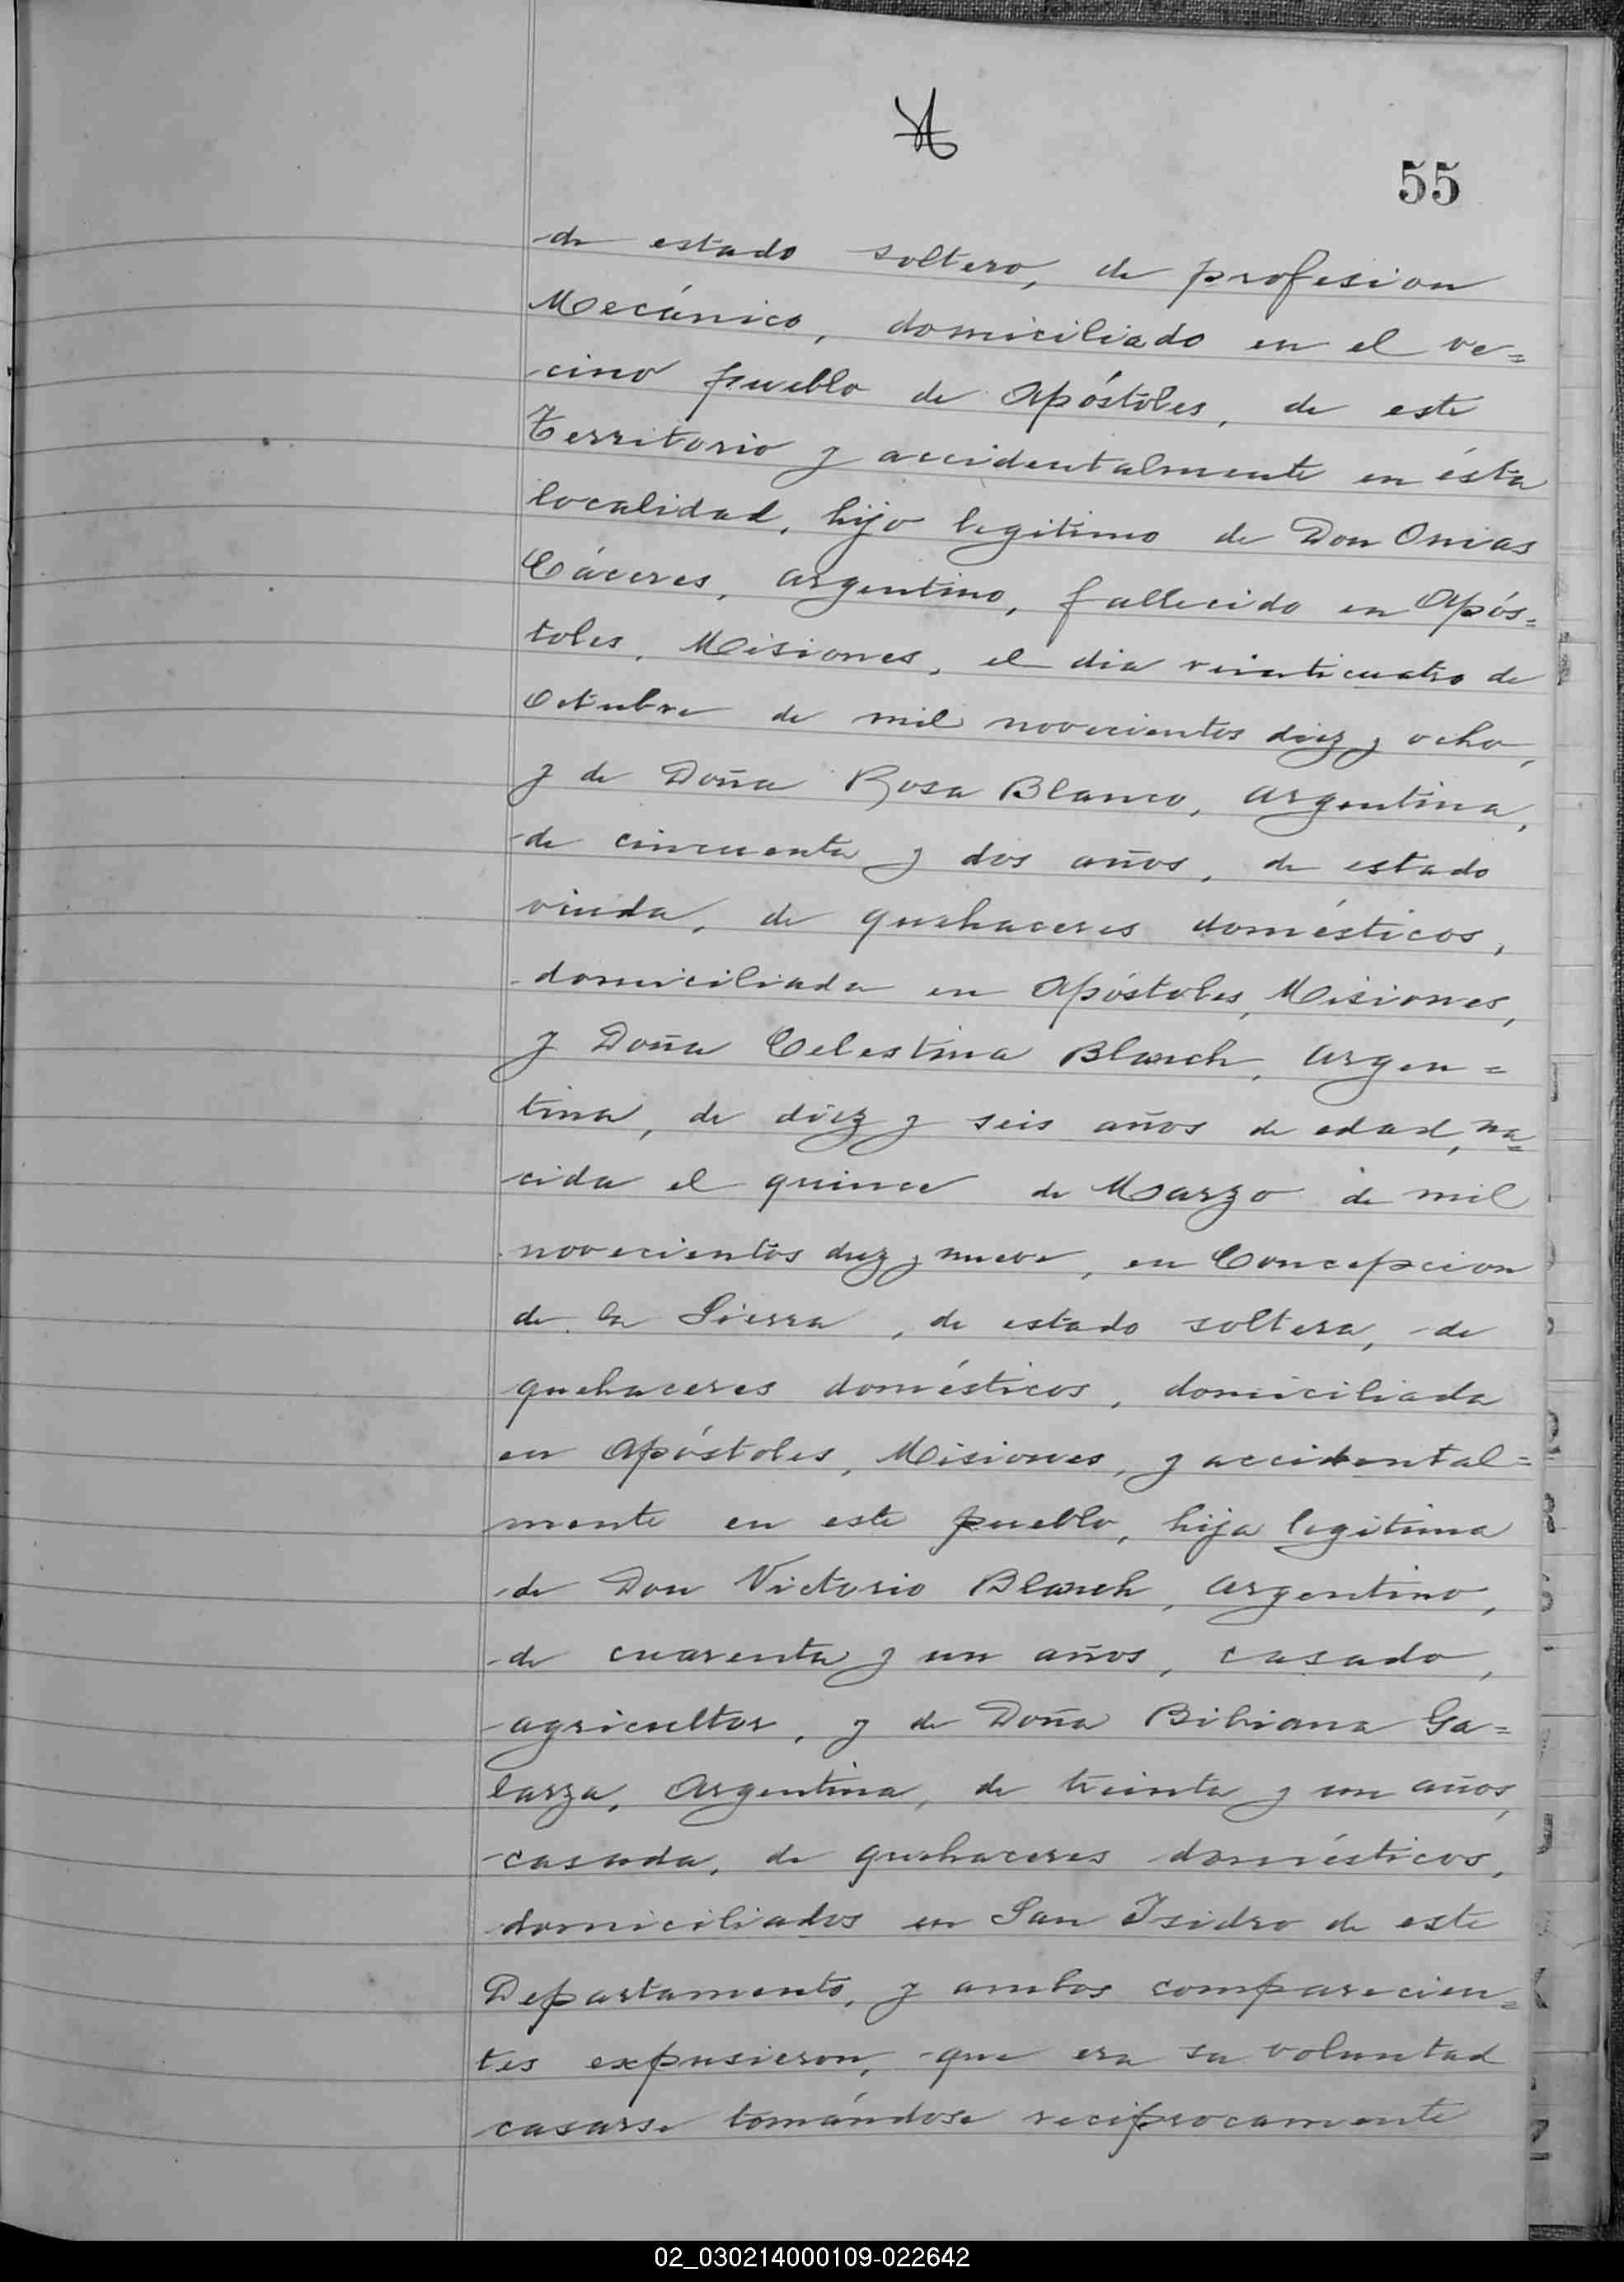 55
de estado soltero, de profesion
Mecánico, domiciliado en el ve=
cino pueblo de Apóstoles, de este
Territorio y accidentalmente en ésta
localidad, hijo legitimo de Don Onias
Cáceres, argentino, fallecido en Após=
toles, Misiones, el dia veinticuatro de
Octubre de mil novecientos diez y ocho,
y de Doña Rosa Blanco, argentina,
de cincuenta y dos años, de estado
viuda, de quehaceres domésticos,
domiciliada en Apóstoles, Misiones,
y Doña Celestina Blanch, argen=
tina, de diez y seis años de edad, na=
cida el quince de Marzo de mil
novecientos diez y nueve, en Concepcion
de la Sierra, de estado soltera, de
quehaceres domésticos, domiciliada
en Apóstoles, Misiones, y accidental=
mente en este pueblo, hija legitima
de Don Victorio Blanch, argentino,
de cuarenta y un años, casado,
agricultor, y de Doña Bibiana Ga=
larza, Argentina, de treinta y un años,
casada, de quehaceres domésticos,
domiciliados en San Isidro de este
Departamento, y ambos comparecien=
tes expusieron, que era su voluntad
casarse tomándose reciprocamente
02_030214000109-022642